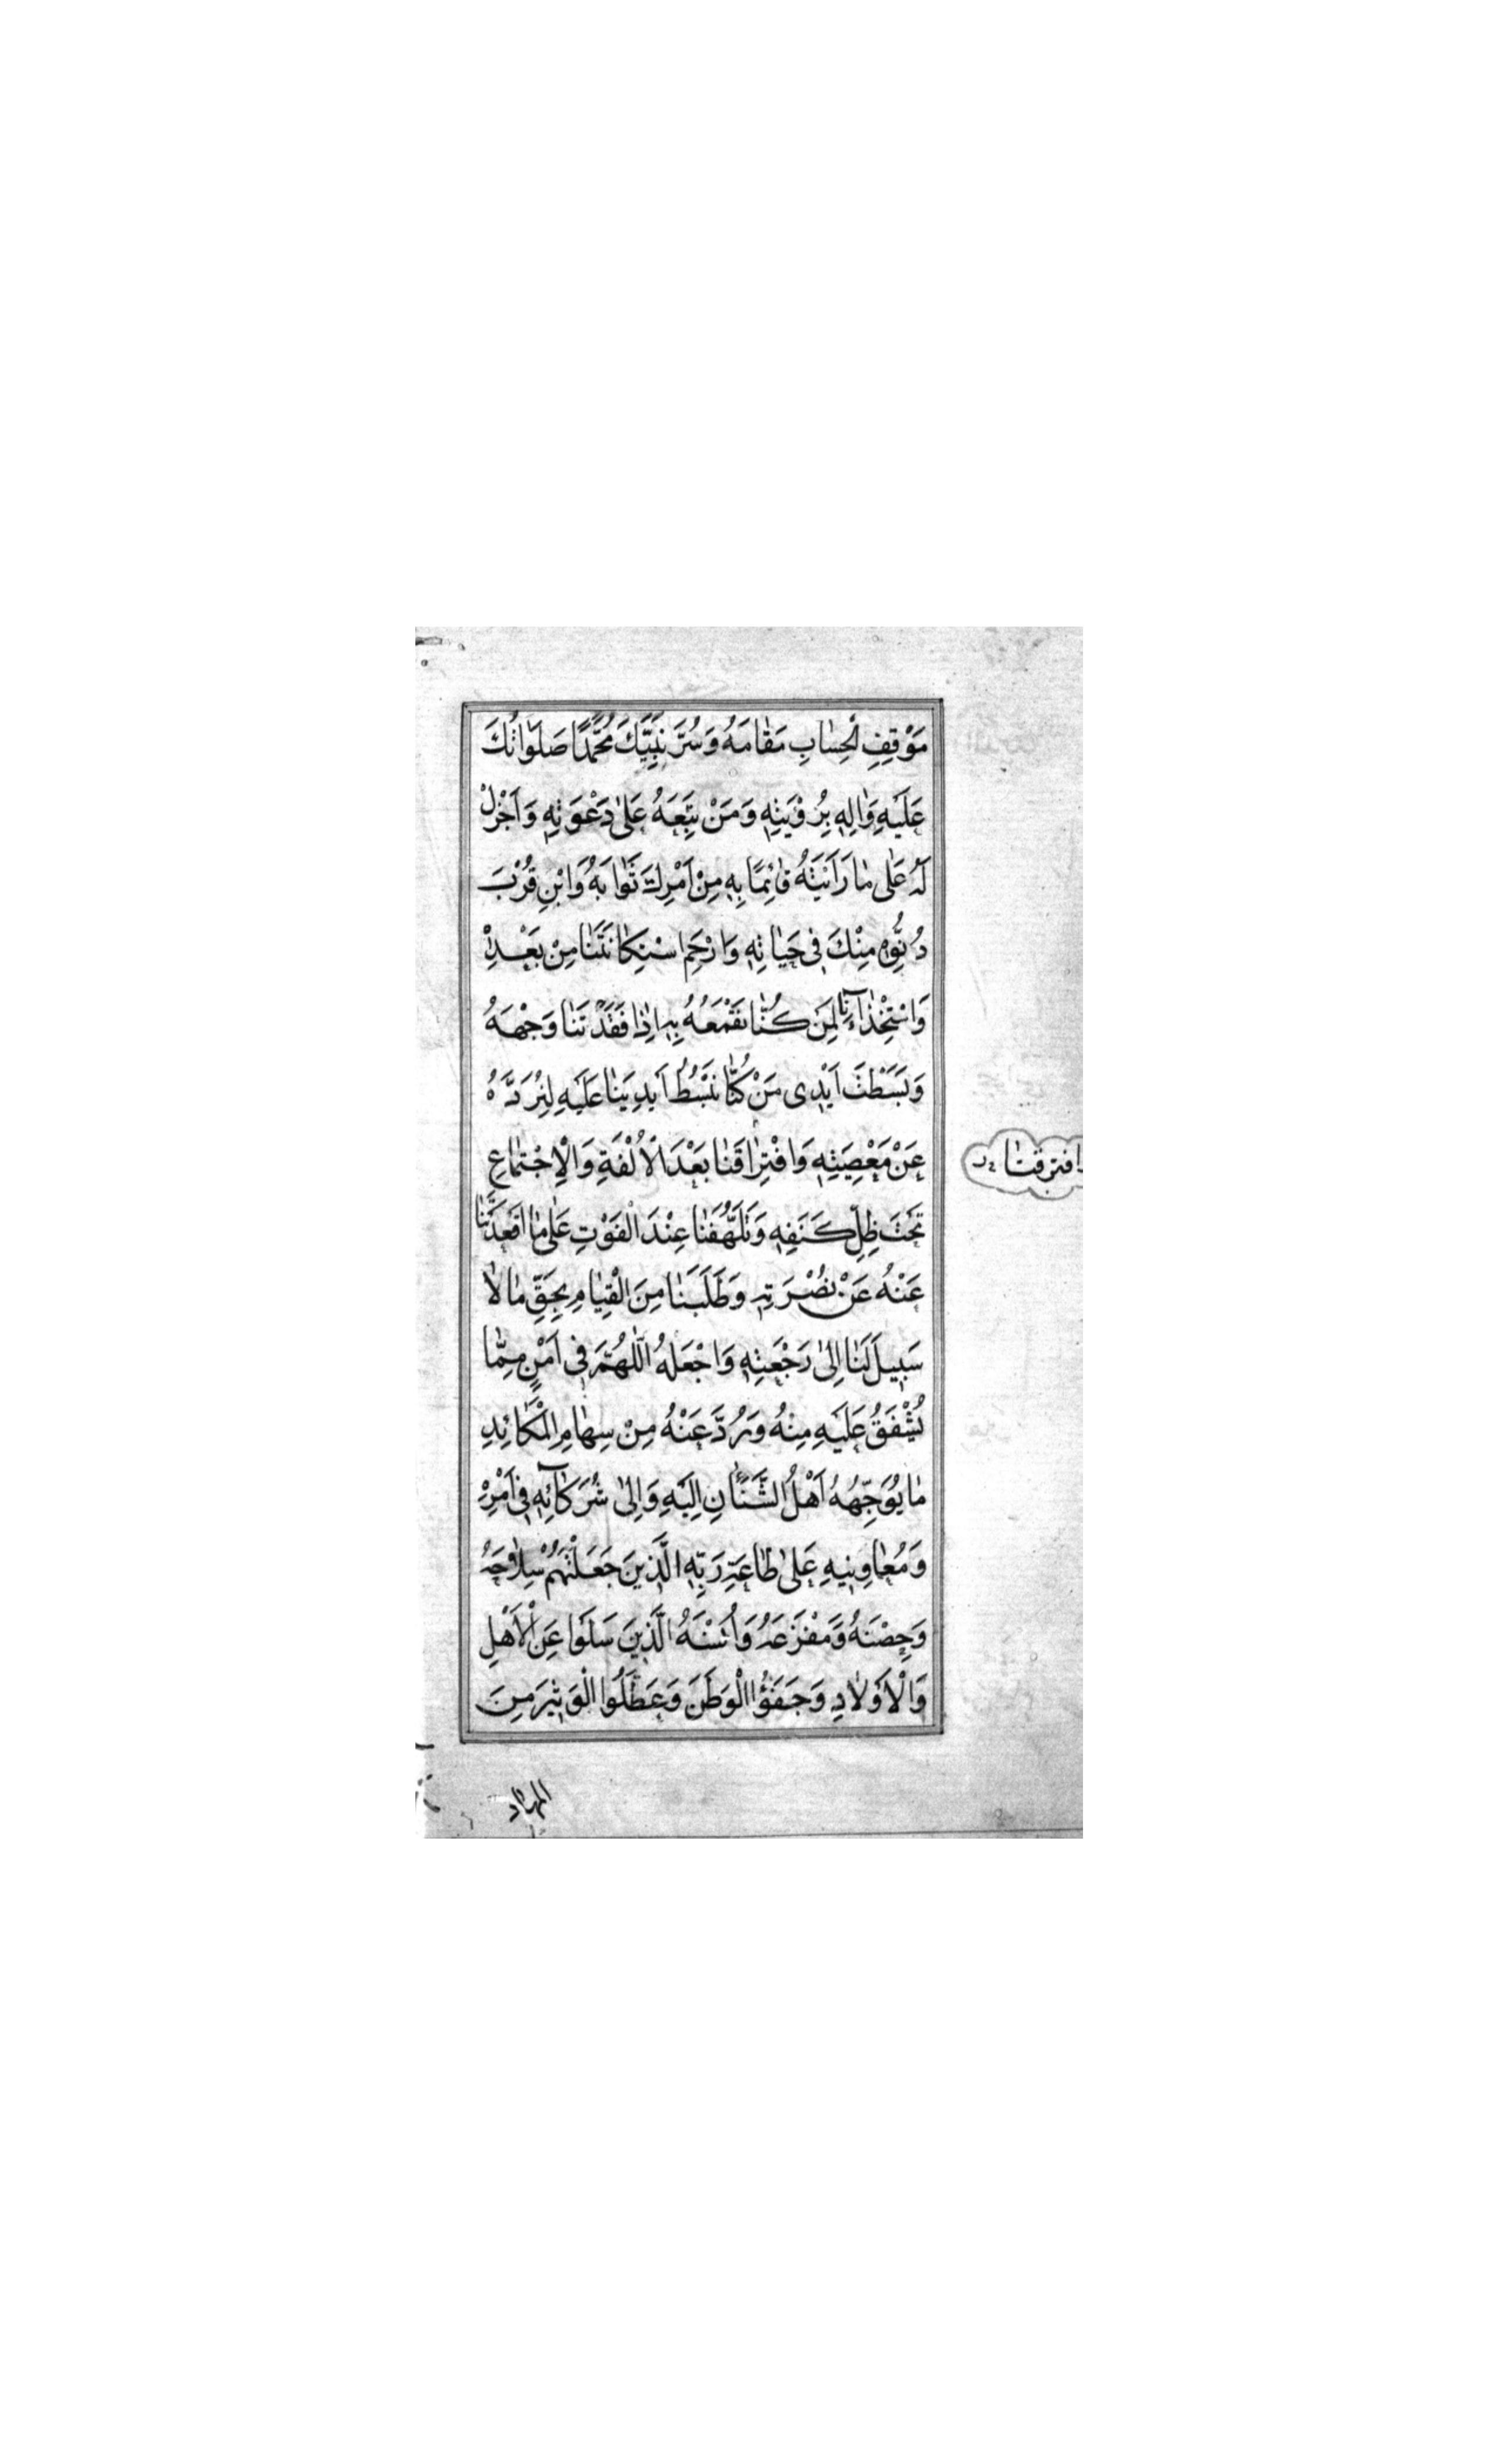 مَوْقِفِ الْحِسٰابِ مَقٰامَهُ وَسُرَّ نَبِيَّكَ مُحَمَّدًا صَلَوٰاتُكَ
عَلَيْهِ وَاٰلِهِ بِرُؤْيَتِهِ وَمَنْ تَبِعَهُ عَلىٰ دَعْوَتِهِ وَاَجْزِلْ
لَهُ عَلىٰ مٰا رَاَيْتَهُ قٰائِمًا بِهِ مِنْ اَمْرِكَ ثَوٰابَهُ وَابْنِ قُرْبَ
دُنُوِّهِ مِنْكَ فِي حَيٰاتِهِ وَارْحَمِ اسْتِكٰانَتَنٰا مِنْ بَعْدِهِ
وَاسْتِخْذٰاءَنٰا لِمَنْ كُنّٰا نَقْمَعُهُ بِهِ اِذٰا فَقَدْتَنٰا وَجْهَهُ
وَبَسَطْتَ اَيْدِى مَنْ كُنّٰا نَبْسُطُ اَيْدِيَنٰا عَلَيْهِ لِنَرُدَّهُ
عَنْ مَعْصِيَتِهِ وَافْتِرٰاقَنٰا بَعْدَ الْاُلْفَةِ وَالْاِجْتِمٰاعِ
وافترقنٰا
تَحْتَ ظِلِّ كَنَفِهِ وَتَلَهُّفَنٰا عِنْدَ الْفَوْتِ عَلىٰ مٰا اَقْعَدْتَنٰا
عَنْهُ عَنْ نُصْرَتِهِ وَطَلَبَنٰا مِنَ الْقِيٰامِ بِحَقِّ مٰا لاٰ
سَبِيلَ لَنٰا اِلىٰ رَجْعَتِهِ وَاجْعَلْهُ اللّٰهُمَّ فِي اَمْنٍ مِمّٰا
نُشْفِقُ عَلَيْهِ مِنْهُ وَرُدَّ عَنْهُ مِنْ سِهٰامِ الْمَكٰائِدِ
مٰا يُوَجِّهُهُ اَهْلُ الشَّنَاٰنِ اِلَيْهِ وَاِلىٰ شُرَكٰائِهِ فِي اَمْرِهِ
وَمُعٰاوِنِيهِ عَلىٰ طٰاعَةِ رَبِّهِ الَّذِينَ جَعَلْتَهُمْ سِلاٰحَهُ
وَحِصْنَهُ وَمَفْزَعَهُ وَاُنْسَهُ الَّذِينَ سَلَوْا عَنِ الْاَهْلِ
وَالْاَوْلاٰدِ وَجَفَوُا الْوَطَنَ وَعَطَّلُوا الْوَثِيرَ مِنَ
المهاد